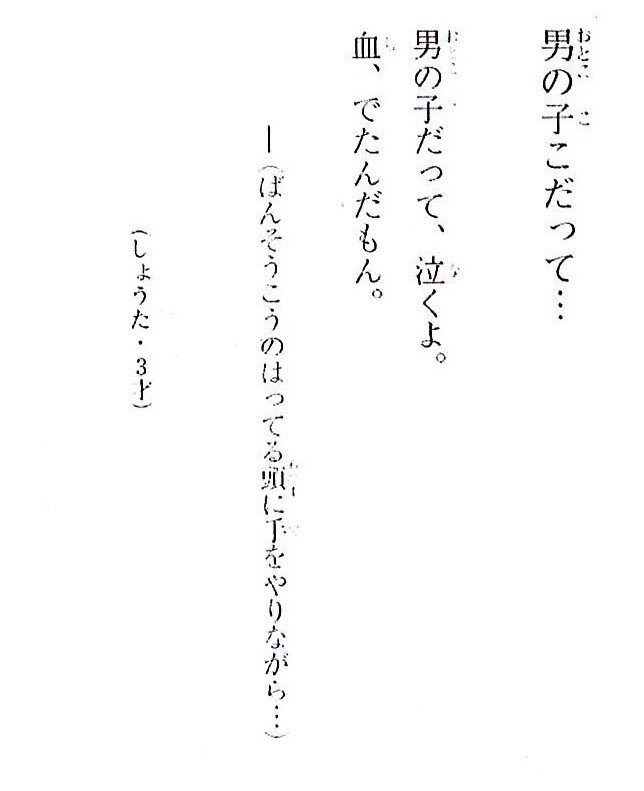 男の子こだって…
男の子だって、泣くよ。
血、でたんだもん。
―(ばんそうこうのはってる頭に手をやりながら…)
(しょうた・3才)